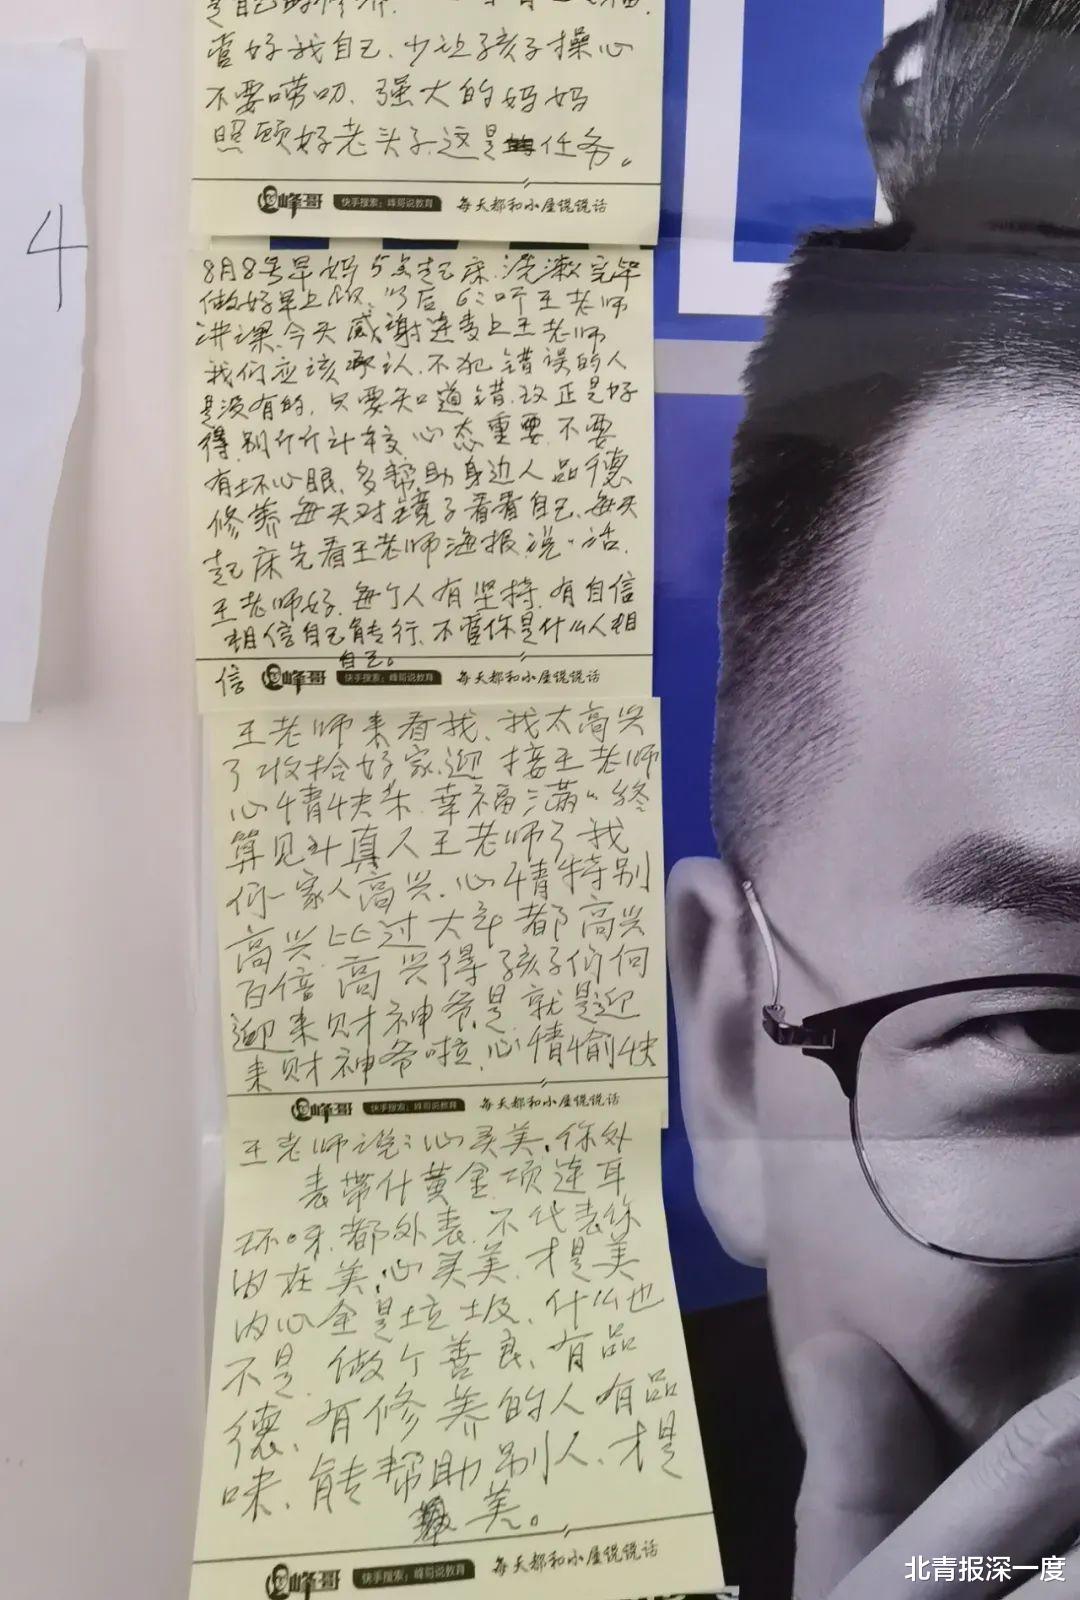 管好我自己、少让孩子操心
不要唠叨、强大的妈妈
照顾好老头子、这是任务。
峰哥 快手搜索：峰哥说教育 每天都和小屋说说话
4
8月8号早妈5点起床、洗漱完毕
做好早上饭、6:
讲课、今天感谢连麦上王老师
我们应该承认、不犯错误的人
是没有的、只要知道错、改正是好
得、别斤斤计较、心态重要、不要
有坏心眼、多帮助身边人品德
修养、每天对镜子看看自己、每天
起床先看王老师海报、说〃话、
王老师好、每个人有坚持、有自信
相信自己能行、不管你是什么人相
信 自己。
峰哥 快手搜索：峰哥说教育 每天都和小屋说说话
王老师来看我、我太高兴
了收拾好家、迎接王老师
心情快乐、幸福满〃终
算见到真人王老师了我
们一家人高兴、心情特别
高兴、比过大年都高兴
百倍、高兴得孩子们问
迎来财神爷是、就是迎
来财神爷啦、心情愉快
峰哥 快手搜索：峰哥说教育 每天都和小屋说说话
王老师说：心灵美、你外
表带什黄金、项连耳
环、都外表、不代表你
内在美、心灵美、才是美
内心全是垃圾、什么也
不是、做个善良、有品
德、有修养的人有品
味、能帮助别人、才是
美。
峰哥 快手搜索：峰哥说教育 每天都和小屋说说话
北青报深一度